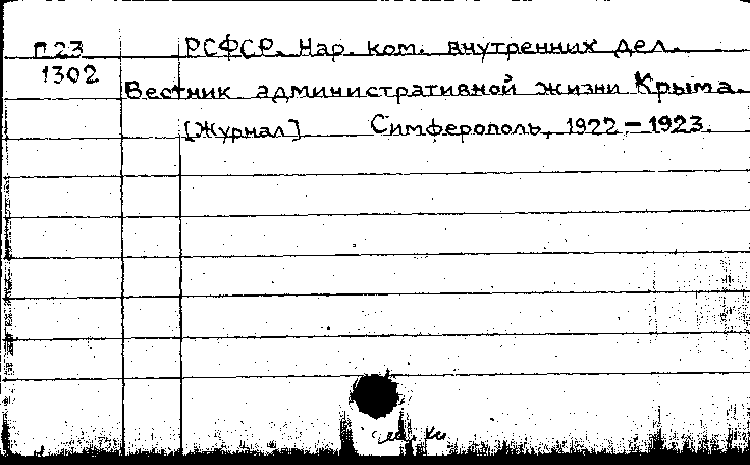 П23 РСФСР. Нар. ком. внутренних дел.
1302
Вестник административной жизни Крыма.
[Журнал] Симферополь, 1922 – 1923.